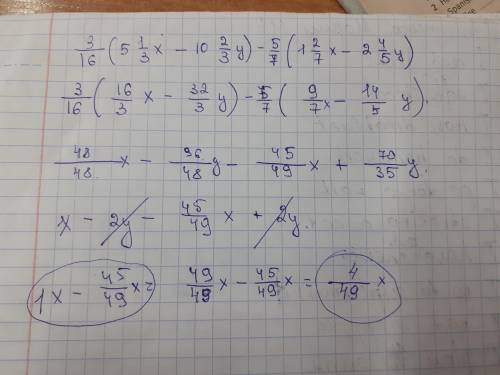 3/16 (5 1/3 x − 10 2/3 y) − 5/7 (1 2/7 x − 2 4/5 y)
3/16 (16/3 x − 32/3 y) − 5/7 (9/7 x − 14/5 y).
48/48 x − 96/48 y − 45/49 x + 70/35 y.
x − 2y − 45/49 x + 2y.
1x − 45/49 x = 49/49 x − 45/49 x = 4/49 x